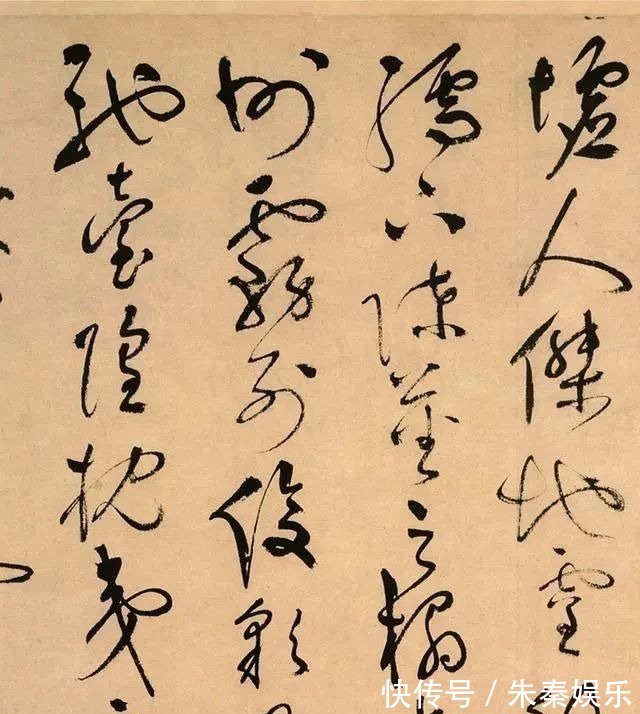 墟人傑地靈
孺下陳蕃之榻
州霧列俊彩
馳臺隍枕夷
快传号 / 朱秦娱乐